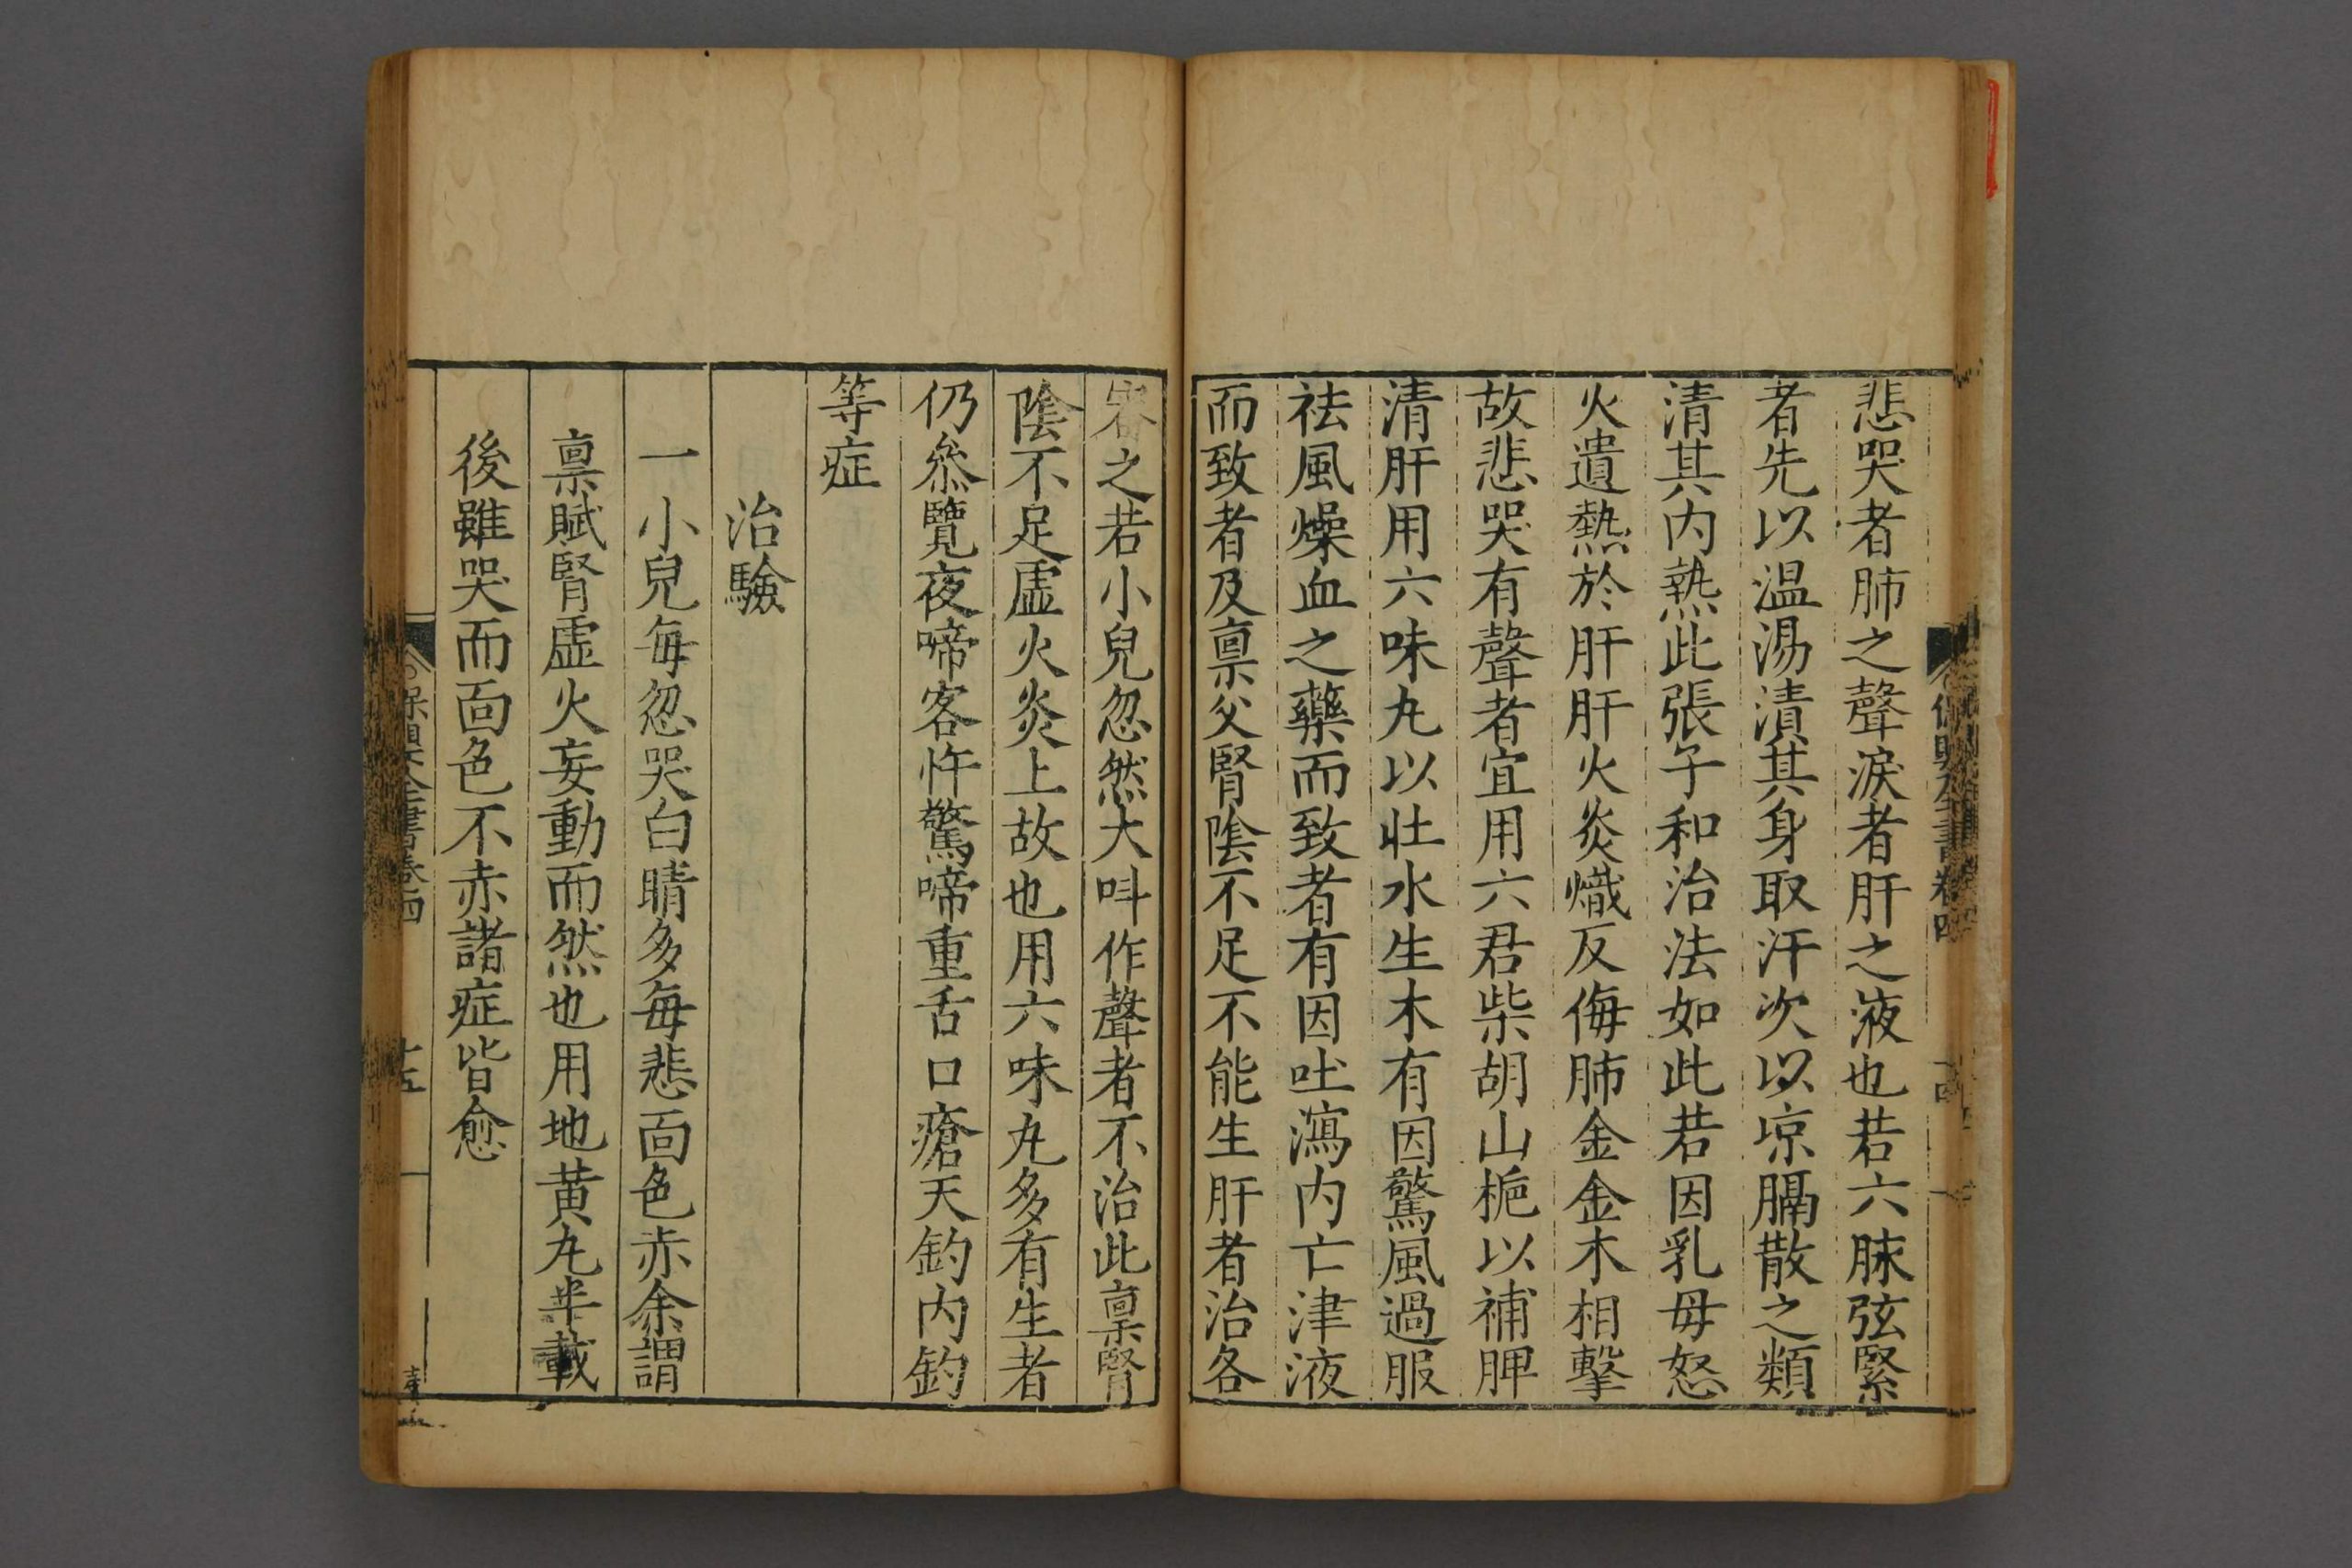 悲哭者肺之聲淚者肝之液也若六脉弦緊
者先以温湯漬其身取汗次以凉膈散之類
清其内熱此張子和治法如此若因乳母怒
火遺熱於肝肝火炎熾反侮肺金金木相擊
故悲哭有聲者宜用六君柴胡山梔以補脾
清肝用六味丸以壯水生木有因驚風過服
祛風燥血之藥而致者有因吐瀉内亡津液
而致者及禀父腎陰不足不能生肝者治各
審之若小兒忽然大呌作聲者不治此禀腎
陰不足虛火炎上故也用六味丸多有生者
仍叅覽夜啼客忤驚啼重舌口瘡天釣内釣
等症
治驗
一小兒每忽哭白睛多每悲面色赤余謂
禀賦腎虛火妄動而然也用地黃丸半載
後雖哭而面色不赤諸症皆愈
保嬰全書卷四
十五